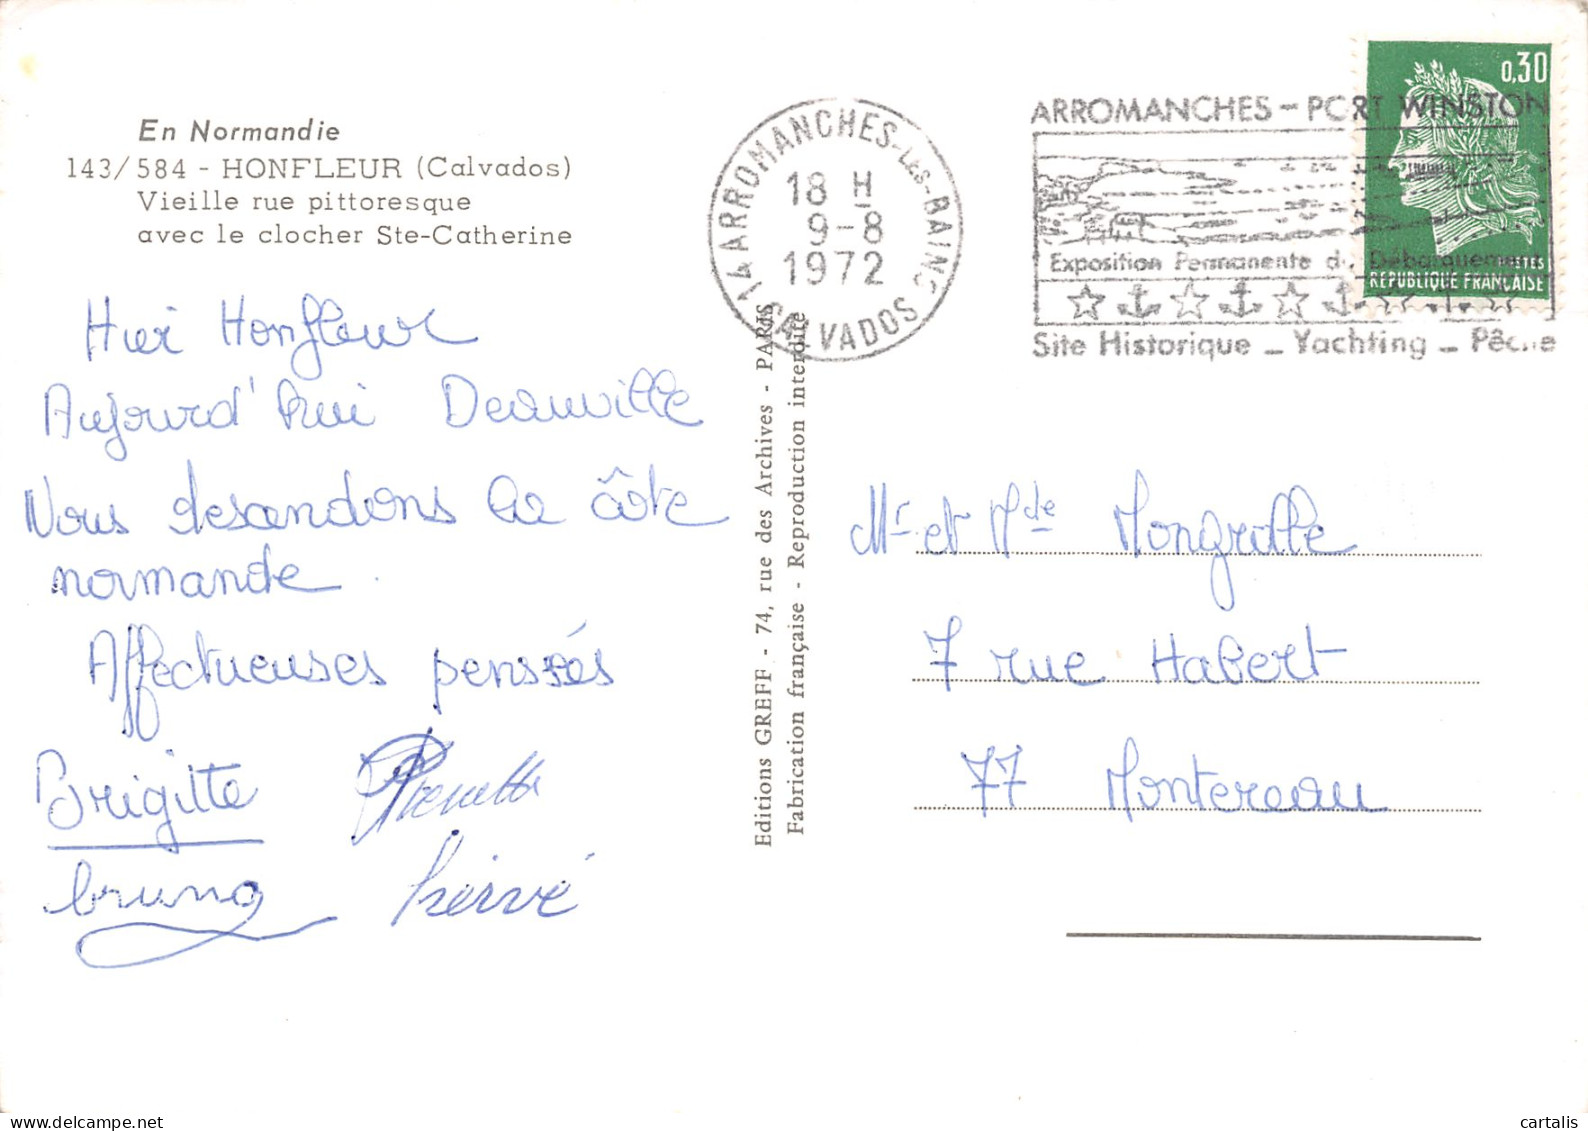 En Normandie
143/584 - HONFLEUR (Calvados)
Vieille rue pittoresque
avec le clocher Ste-Catherine
Hier Honfleur
Aujourd'hui Deauville
Nous descendons la côte
normande.
Affectueuses pensées
Brigitte
bruno hervé
Editions GREFF - 74, rue des Archives - PARIS
Fabrication française - Reproduction interdite
14 ARROMANCHES-LES-BAINS
18 H
9-8
1972
CALVADOS
ARROMANCHES - PORT WINSTON
Exposition Permanente du Débarquement
Site Historique - Yachting - Pêche
0,30
REPUBLIQUE FRANÇAISE
POSTES
Mr et Mde Mongrille
7 rue Habert
77 Montereau
cartalis
delcampe.net